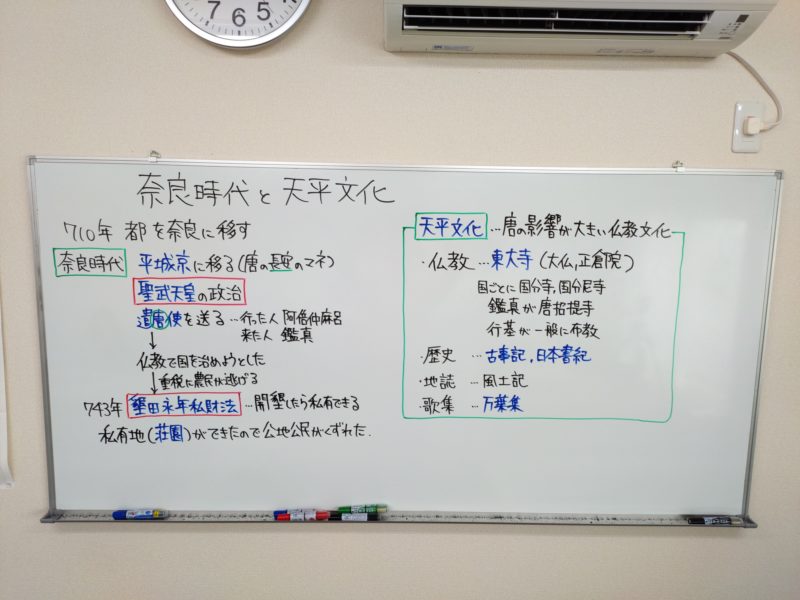 7 6 5
奈良時代と天平文化
710年 都を奈良に移す
奈良時代 平城京に移る(唐の長安のマネ)
聖武天皇の政治
遣唐使を送る…行った人 阿倍仲麻呂
来た人 鑑真
↓
仏教で国を治めようとした
↓重税に農民が逃げる
743年 墾田永年私財法…開墾したら私有できる
私有地(荘園)ができたので公地公民がくずれた.
天平文化…唐の影響が大きい仏教文化
・仏教 …東大寺(大仏,正倉院)
国ごとに国分寺,国分尼寺
鑑真が唐招提寺
行基が一般に布教
・歴史 …古事記,日本書紀
・地誌 …風土記
・歌集 …万葉集